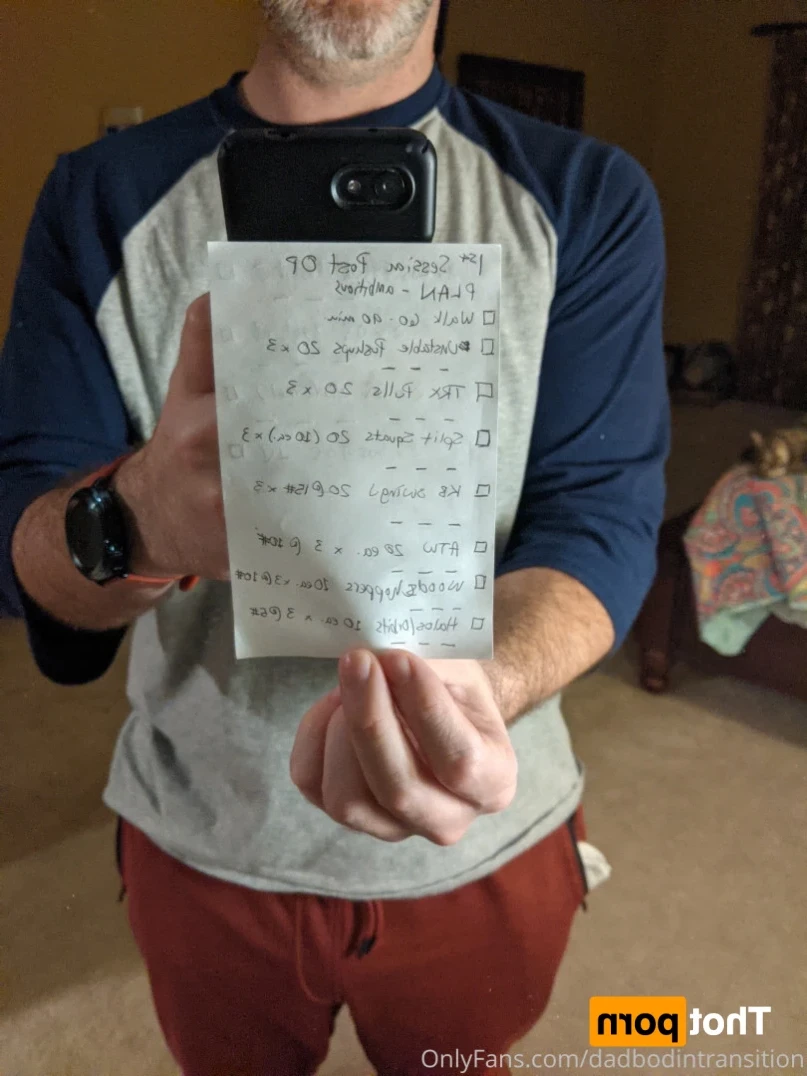 1st Session Post OP
PLAN - ambitious
Walk 60-90 min
Unstable Pushups 20 x 3
TRX Pulls 20 x 3
Split Squats 20 (10 ea.) x 3
KB swings 20 @ 15# x 3
ATW 20 ea. x 3 @ 10#
Woodchoppers 10 ea. x 3 @ 10#
Halos/Orbits 10 ea. x 3 @ 5#
Thot porn
OnlyFans.com/dadbodintransition